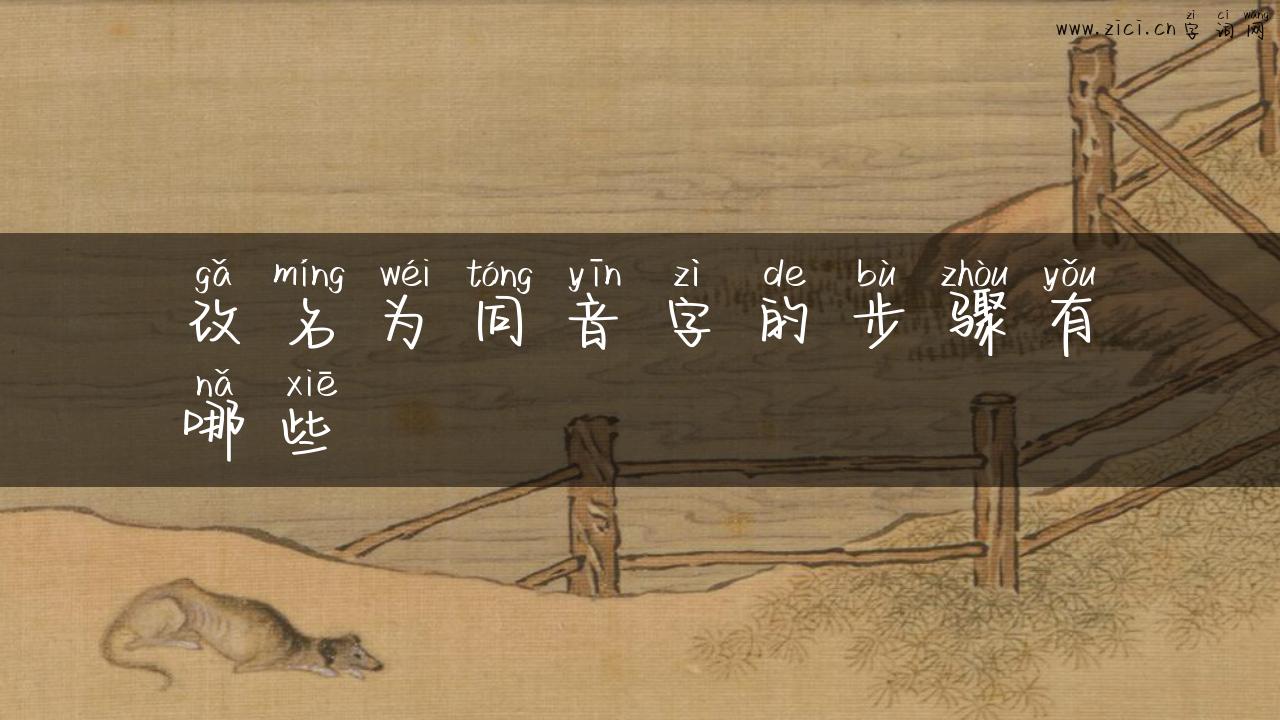 zì cí wǎng
www.zici.cn 字词网
gǎ míng wéi tóng yīn zì de bù zhòu yǒu
改名为同音字的步骤有
nǎ xiē
哪些